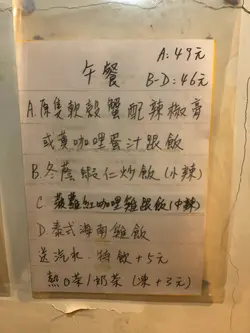 A: 49元
午餐 B-D: 46元
A. 原隻軟殼蟹配辣椒膏
或黃咖哩蛋汁跟飯
B. 冬蔭蝦仁炒飯(小辣)
C 菠蘿紅咖哩雞跟飯(中辣)
D. 泰式海南雞飯
送汽水. 特飲+5元
熱口茶/奶茶 (凍+3元)